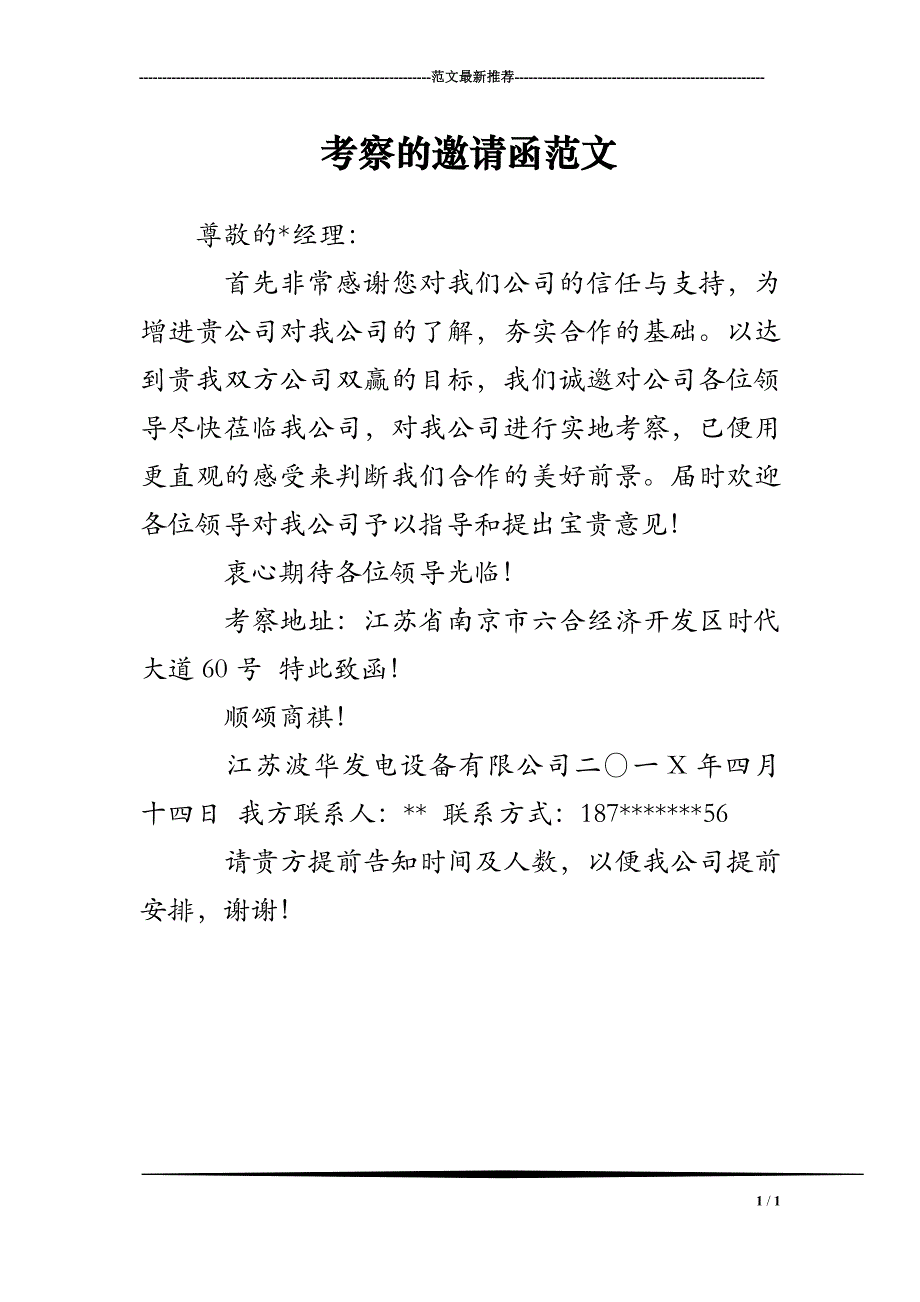 ---------------------------------------------------------------范文最新推荐------------------------------------------------------
考察的邀请函范文
尊敬的*经理：
首先非常感谢您对我们公司的信任与支持，为
增进贵公司对我公司的了解，夯实合作的基础。以达
到贵我双方公司双赢的目标，我们诚邀对公司各位领
导尽快莅临我公司，对我公司进行实地考察，已便用
更直观的感受来判断我们合作的美好前景。届时欢迎
各位领导对我公司予以指导和提出宝贵意见！
衷心期待各位领导光临！
考察地址：江苏省南京市六合经济开发区时代
大道 60 号 特此致函！
顺颂商祺！
江苏波华发电设备有限公司二〇一 X 年四月
十四日 我方联系人：** 联系方式：187*******56
请贵方提前告知时间及人数，以便我公司提前
安排，谢谢！
1 / 1